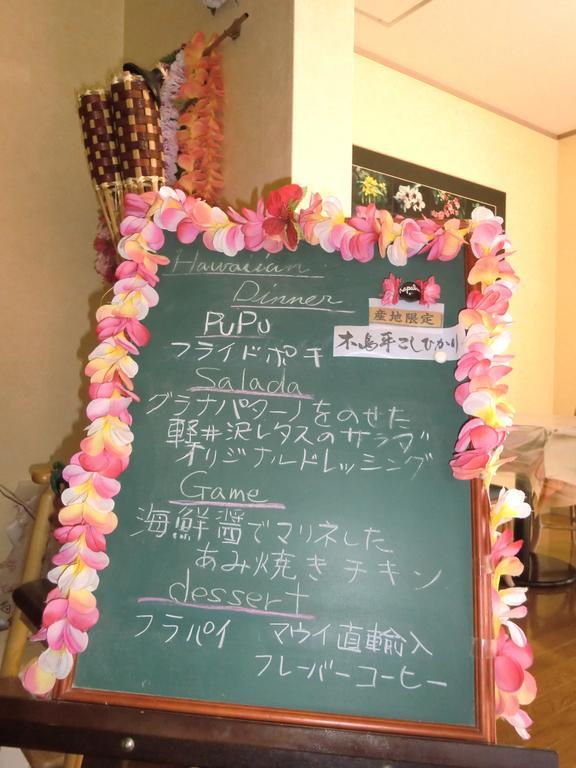 Hawaiian
Dinner
産地限定
木島平こしひかり
PuPu
フライドポキ
Salada
グラナパダーノをのせた
軽井沢レタスのサラダ
オリジナルドレッシング
Game
海鮮醤でマリネした
あみ焼きチキン
dessert
フラパイ マウイ直輸入
フレーバーコーヒー